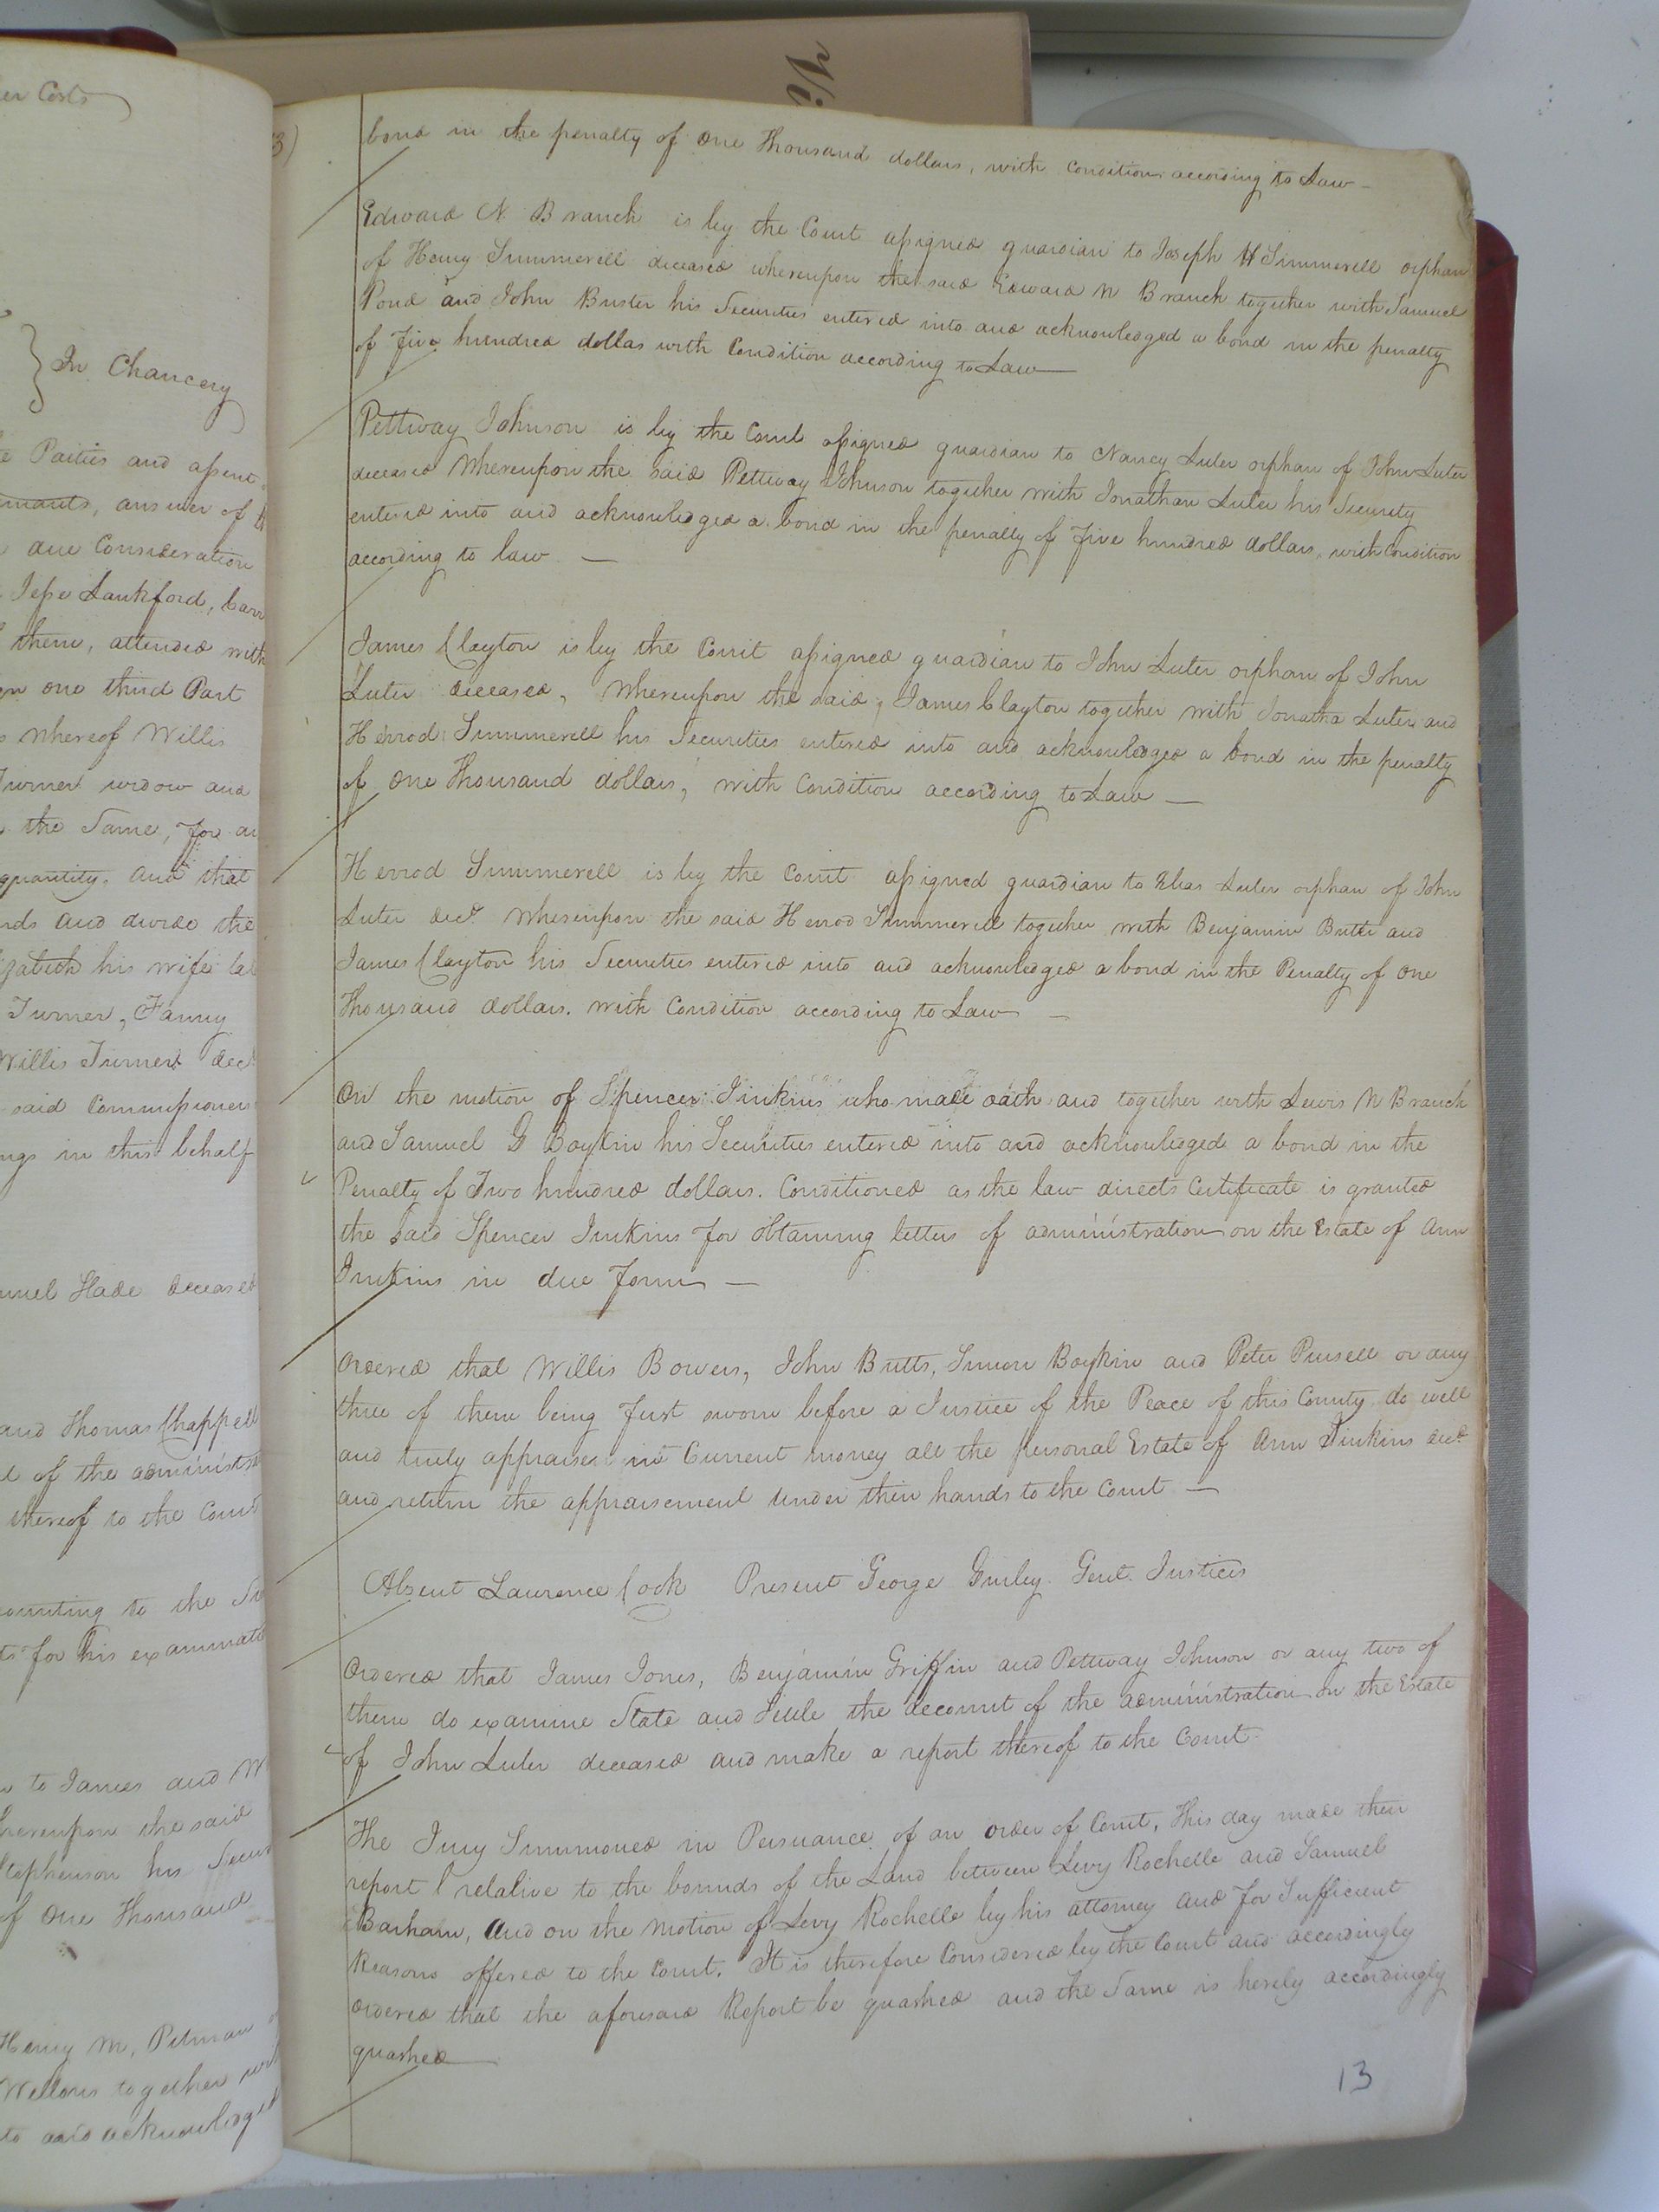 er Costs
In Chancery
e Parties and assent
mants, answer of th
due Consideration
Jesse Lankford, barr
them, attended with
gn one third Part
s whereof Willis
Turner widow and
the Same, for an
quantity, and that
nds and divide the
izabeth his wife lat
Turner, Fanny
Willis Turner decd
said Commissioners
ngs in this behalf
muel Slade deceased
and Thomas Chappell
t of the administra
thereof to the Court
ounting to the Su
ts for his examinati
n to James and W
hereupon the said
Stephenson his Secur
of One Thousand
Henry M, Pitman
Wellons together with
to and acknowledged
Vi
3)
bond in the penalty of One Thousand dollars, with Condition according to Law —
Edward N. Branch is by the Court assigned guardian to Joseph H Simmerell orphan
of Henry Summerell deceased whereupon the said Edward N Branch together with Samuel
Pond and John Buster his Securities entered into and acknowledged a bond in the penalty
of Five hundred dollas with Condition according to Law —
Pettway Johnson is by the Court assigned guardian to Nancy Luter orphan of John Luter
deceased Whereupon the said Pettway Johnson together with Jonathan Luter his Security
entered into and acknowledged a bond in the penalty of Five hundred dollars, with Condition
according to law —
James Clayton is by the Court assigned guardian to John Luter orphan of John
Luter deceased, Whereupon the said, James Clayton together with Jonatha Luter and
Herrod Summerell his Securities entered into and acknowledged a bond in the penalty
of One Thousand dollars, with Condition according to Law —
Herrod Summerell is by the Court assigned guardian to Elias Luter orphan of John
Luter decd. Whereupon the said Herrod Summerell together with Benjamin Butts and
James Clayton his Securities entered into and acknowledged a bond in the Penalty of One
Thousand dollars. with Condition according to Law —
On the motion of Spencer Jinkins who made oath and together with Lewis N Branch
and Samuel G Boykin his Securities entered into and acknowledged a bond in the
Penalty of Two hundred dollars. Conditioned as the law directs Certificate is granted
the said Spencer Jinkins for obtaining letters of administration on the Estate of Ann
Jinkins in due Form —
Ordered that Willis Bowers, John Butts, Simon Boykin and Peter Pursell or any
three of them being first sworn before a Justice of the Peace of this County do well
and truly appraise in Current money all the personal Estate of Ann Jinkins decd
and return the appraisement under their hands to the Court —
Absent Lawrence Cook Present George Gurley. Gent. Justices
Ordered that James Jones, Benjamin Griffin and Pettway Johnson or any two of
them do examine State and Settle the account of the administration on the Estate
of John Luter deceased and make a report thereof to the Court
The Jury Summoned in Persuance of an order of Court, This day made their
report relative to the bounds of the Land between Levy Rochelle and Samuel
Barham, And on the Motion of Levy Rochelle by his attorney and for Sufficient
Reasons offered to the Court. It is therefore Considered by the Court and accordingly
ordered that the aforesaid Report be quashed and the Same is hereby accordingly
quashed
13